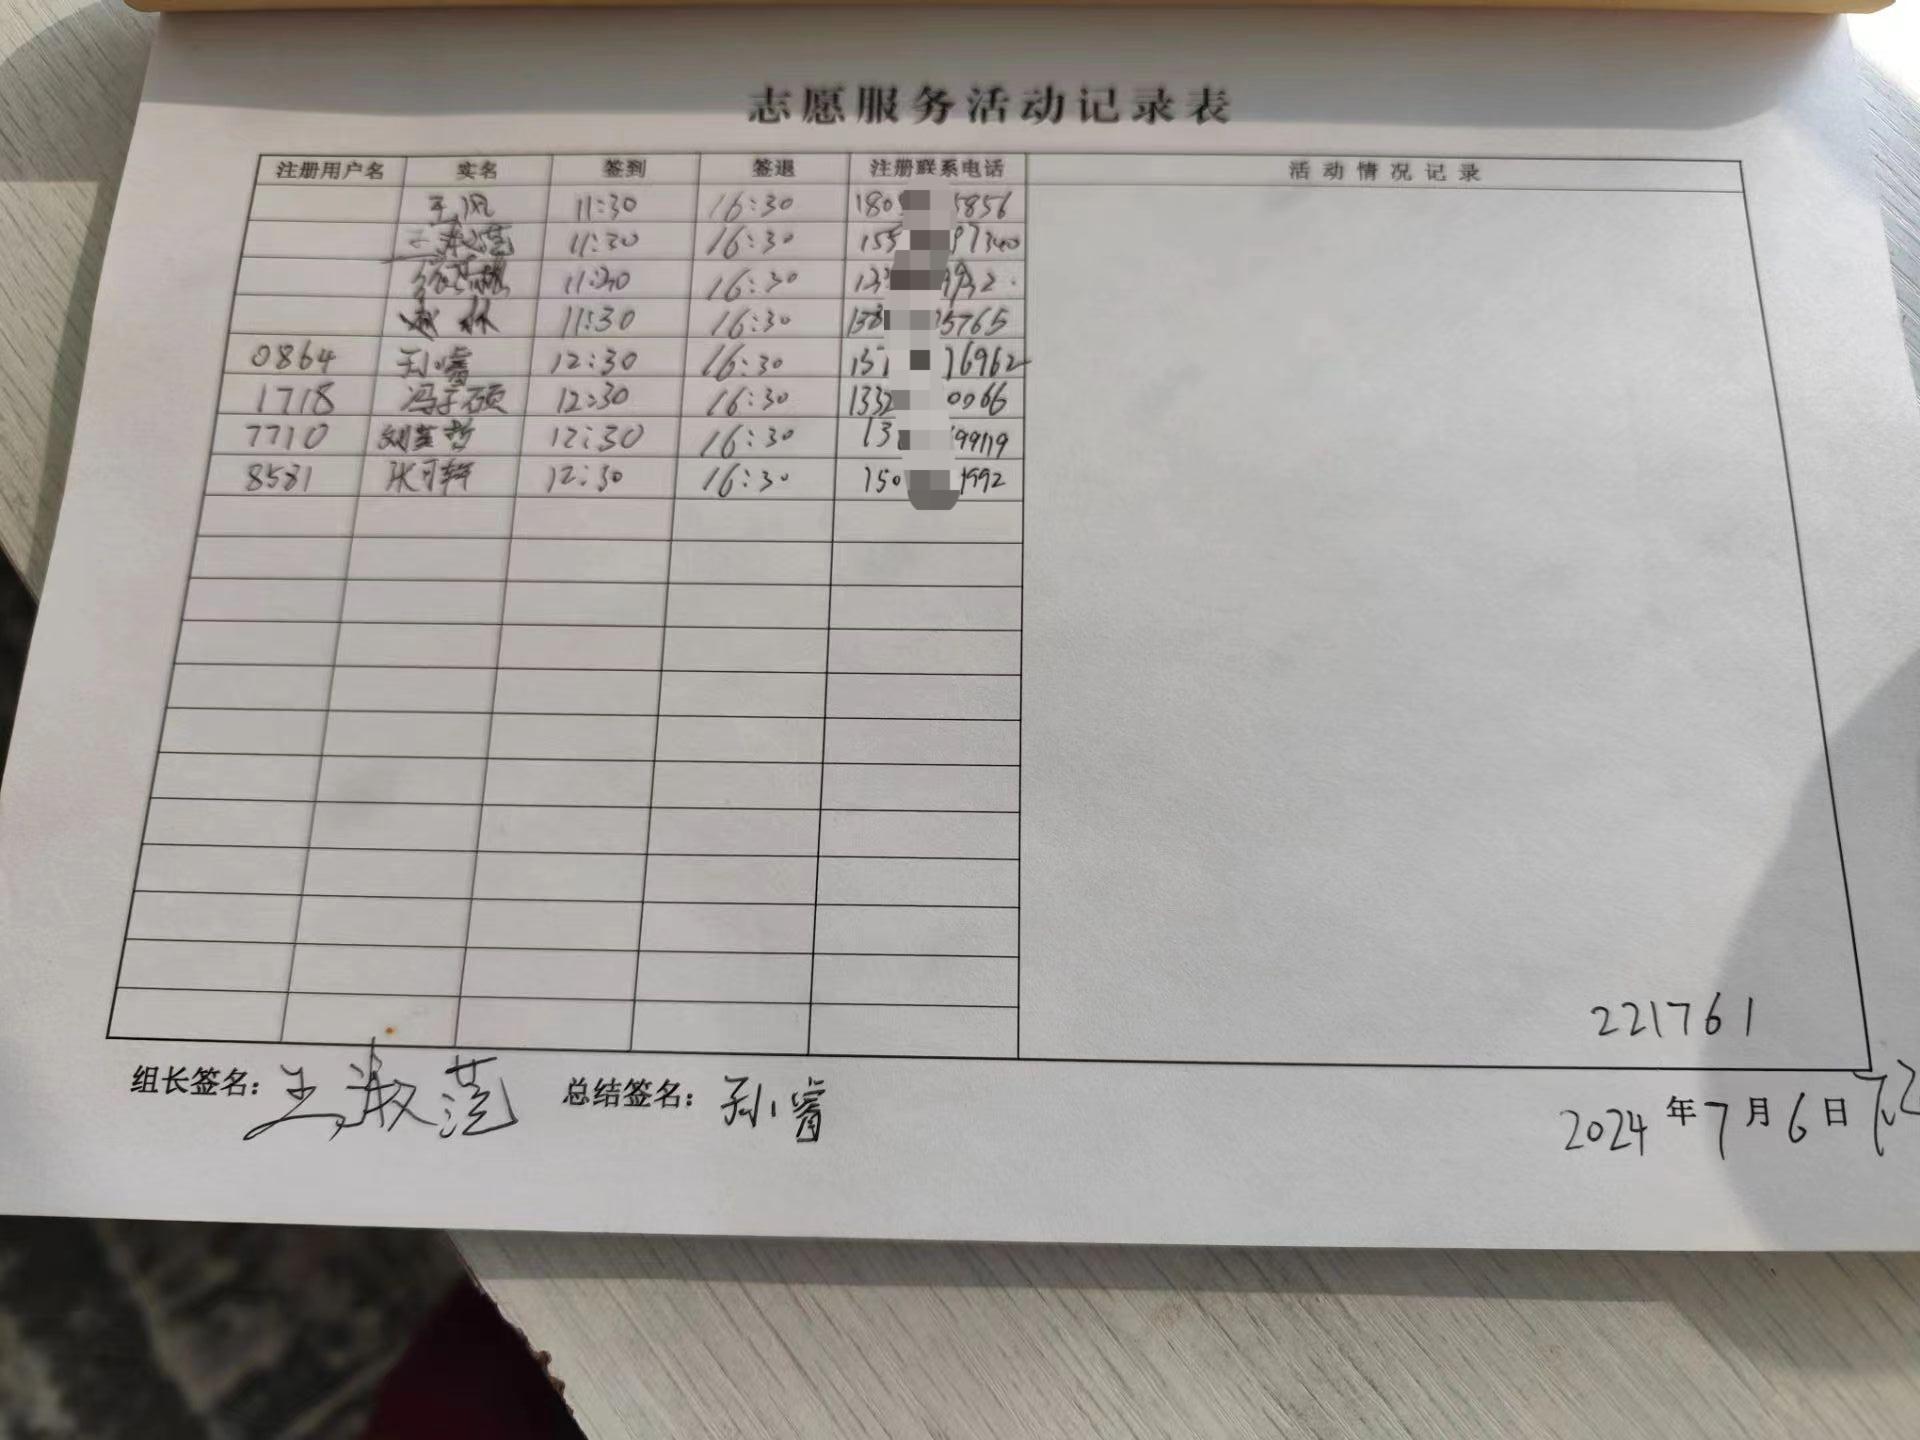 志愿服务活动记录表
注册用户名 实名 签到 签退 注册联系电话 活动情况记录
王凤 11:30 16:30 180 5856
王淑莲 11:30 16:30 155 97340
11:30 16:30 13 9932
林 11:30 16:30 138 5765
0864 孙睿 12:30 16:30 137 16962
1718 冯子硕 12:30 16:30 1332 0066
7710 刘 哲 12:30 16:30 13 99119
8581 张可轩 12:30 16:30 150 1992
221761
组长签名: 王淑莲 总结签名: 孙睿
2024年7月6日